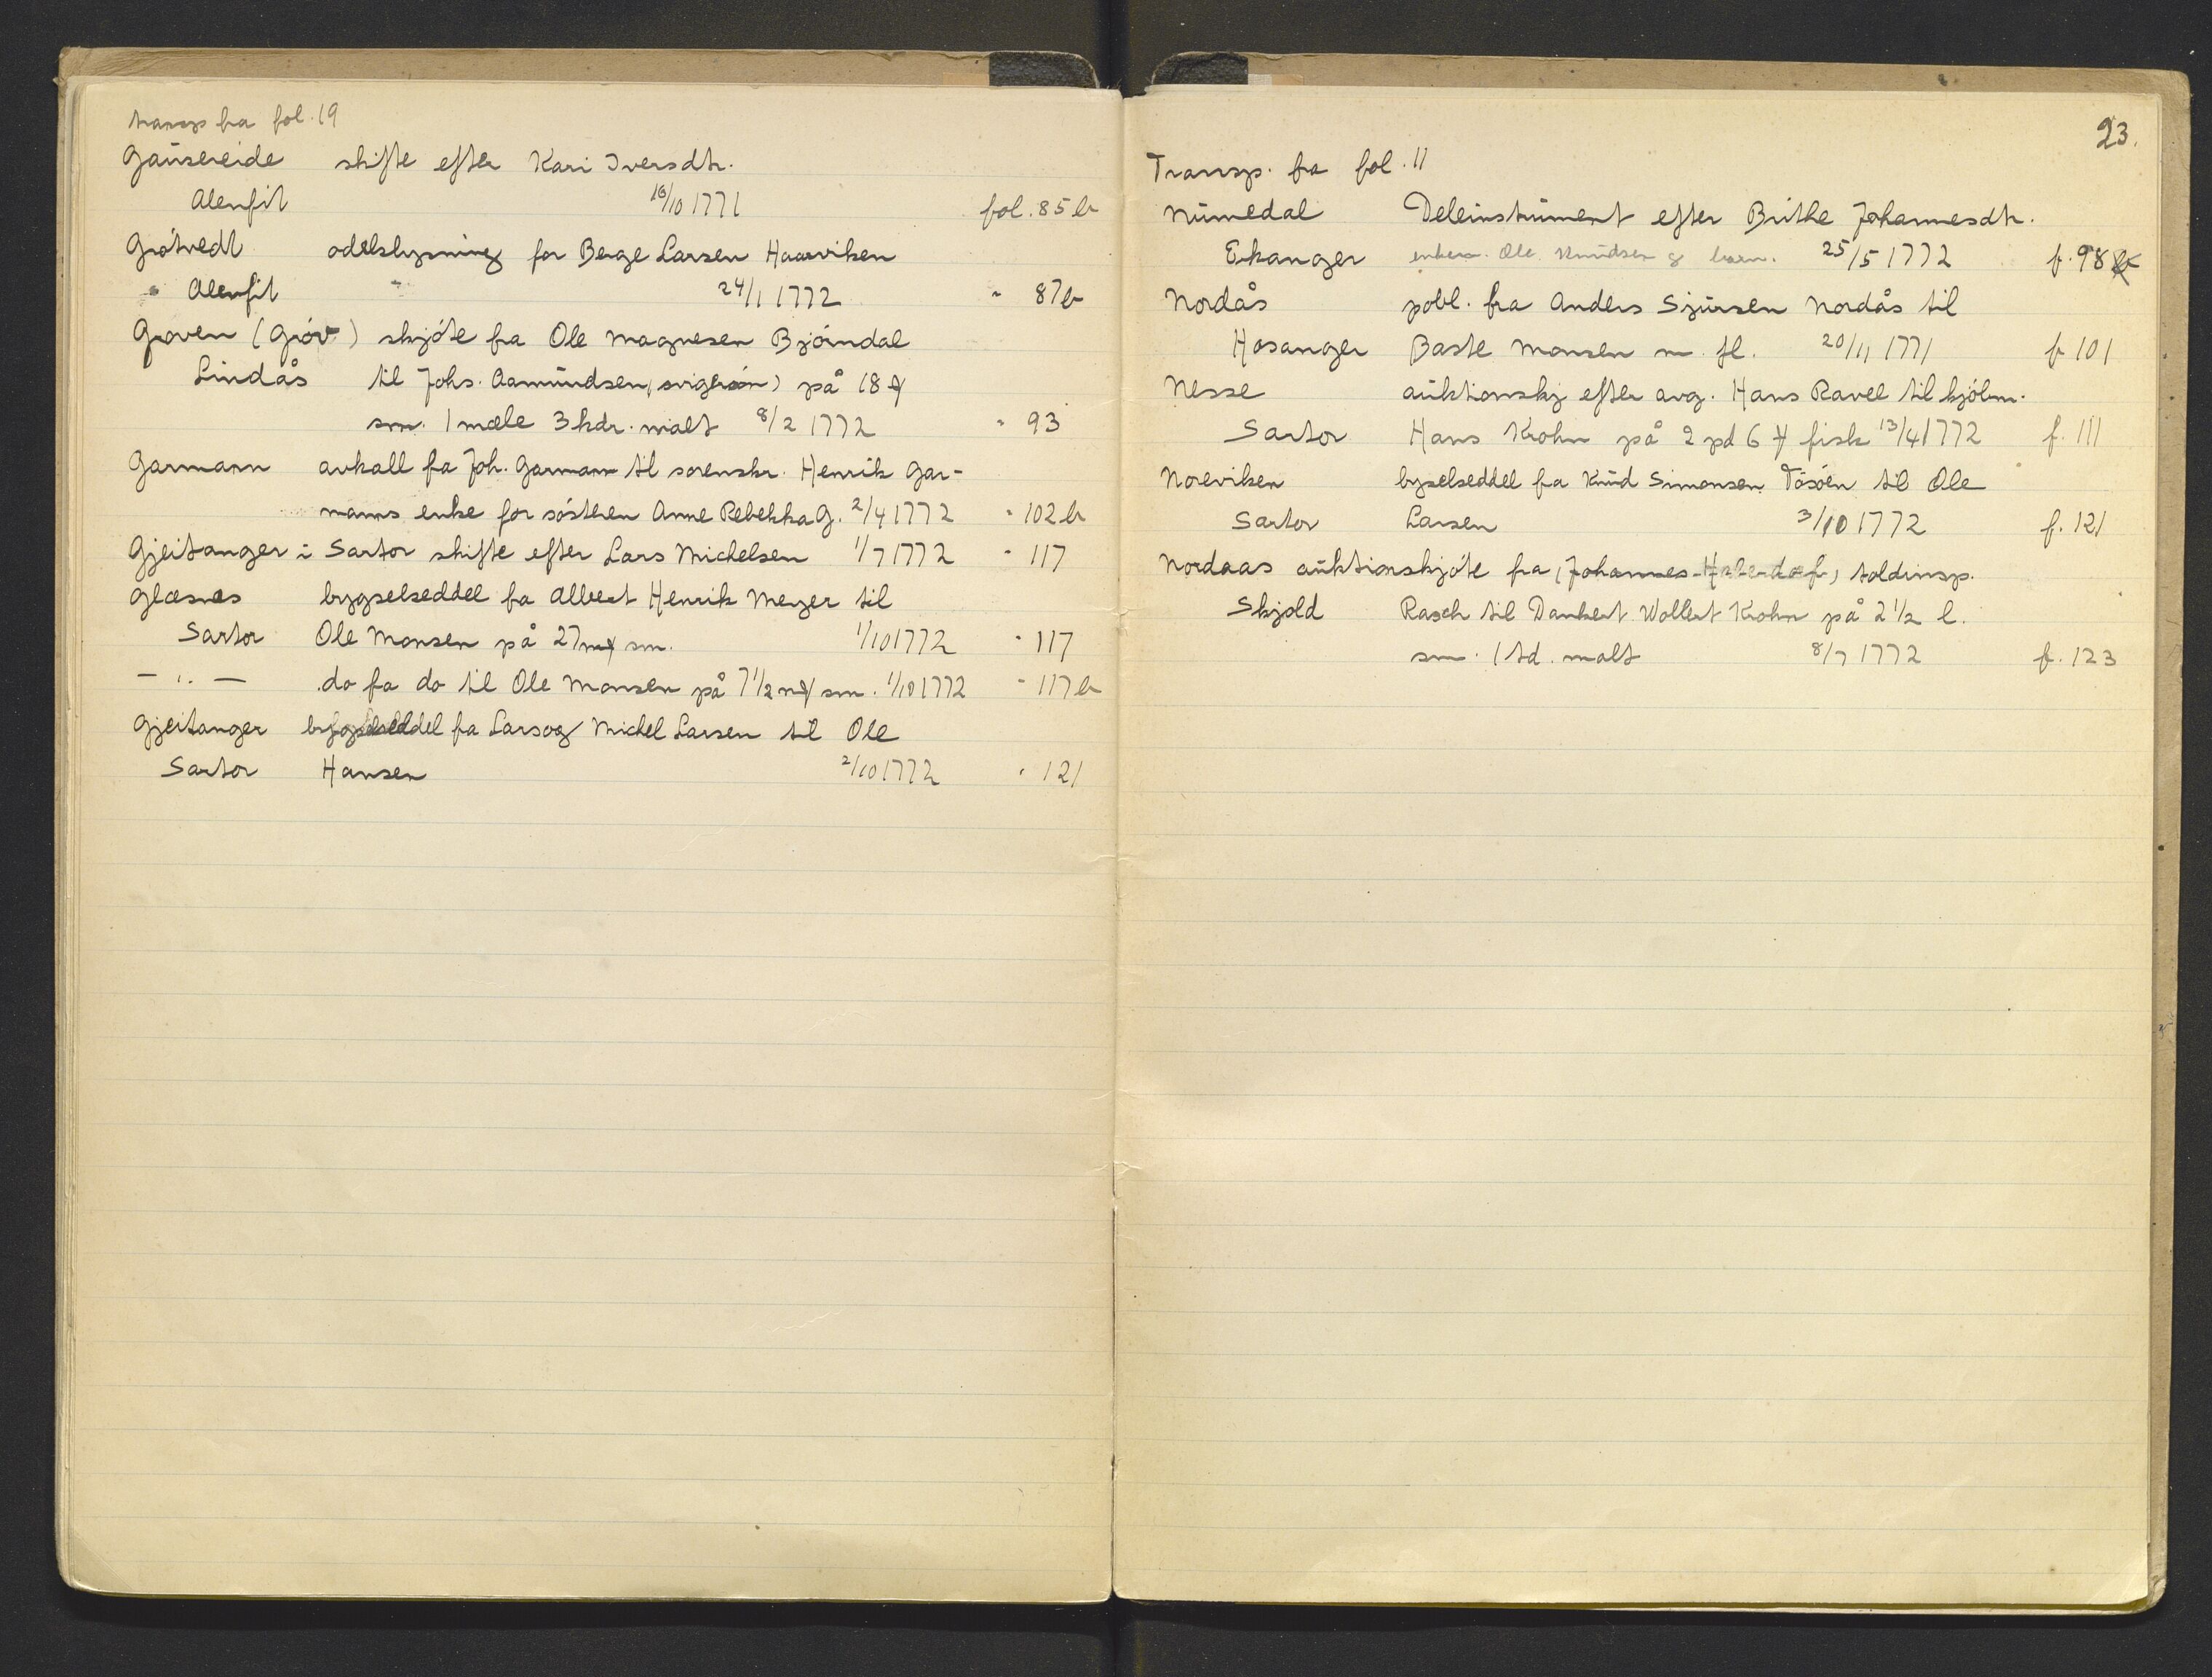 transp fra fol. 19
Gausereide skifte efter Kari Iversdtr.
Alenfit 18/10 1771 fol. 85 b
Grótvedt odelslysning for Berge Larsen Haarviken
" Alenfit " 24/1 1772 " 87 b
Groven (Gróv) skjóte fra Ole Magnesen Bjórndal
Lindås til Johs. Aamundsen, på 18
sm. 1 mæle 3 kdr. malt 8/2 1772 " 93
Garmann avkall fra Joh. Garmann til sorenskr. Henrik Gar-
manns enke for sósteren Anne Rebekka G. 2/4 1772 " 102 b
Gjeitanger i Sartor skifte efter Lars Michelsen 1/7 1772 " 117
Glæsnes bygselseddel fra Albert Henrik Meyer til
Sartor Ole Monsen på 27 sm. 1/10 1772 " 117
— " — do fra do til Ole Monsen på 7 1/2 sm. 1/10 1772 " 117 b
Gjeitanger bygselseddel fra Lars og Michel Larsen til Ole
Sartor Hansen 2/10 1772 " 121
23.
Transp. fra fol. 11
Numedal Deleinstrument efter Brithe Johannesdtr.
Eikanger enkem. Ole Knudsen & barn. 25/5 1772 f. 98
Nordås pobl. fra Anders Sjursen Nordås til
Hosanger Baste Monsen m. fl. 20/11 1771 f 101
Nesse auktionskj efter avg. Hans Ravel til kjóbm.
Sartor Hans Krohn på 2 pd 6 fisk 13/4 1772 f. 111
Noreviken bygselseddel fra Knud Simonsen Tósóen til Ole
Sartor Larsen 3/10 1772 f. 121
Nordaas auktionskjóte fra (Johannes toldinsp.
Skjold Rasch til Dankert Wollert Krohn på 2 1/2 l.
sm. 1 td. malt 8/7 1772 f. 123